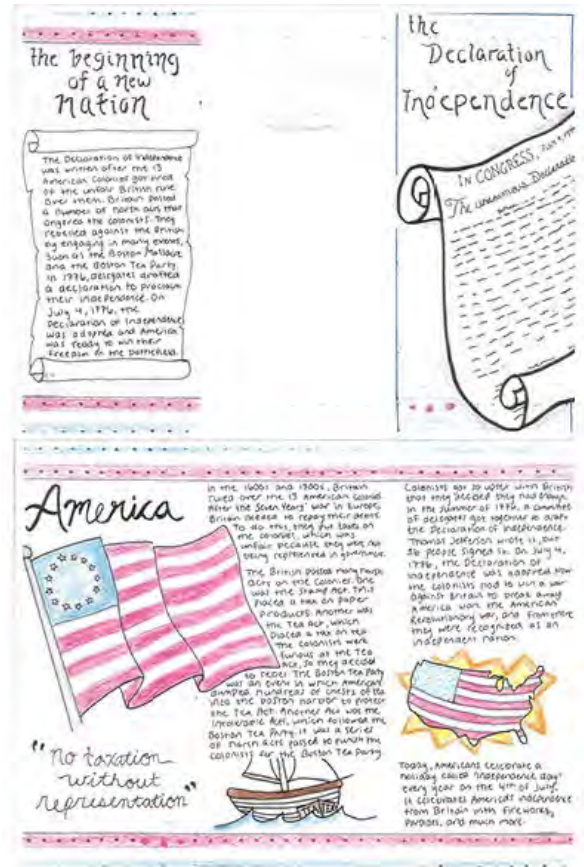 the beginning
of a new
nation
The Declaration of Independence
was written after the 13
American Colonies got tired
of the unfair British rule
over them. Britain passed
a number of harsh acts that
angered the colonists. They
rebelled against the British
by engaging in many events,
such as the Boston Massacre
and the Boston Tea Party.
In 1776, delegates drafted
a declaration to proclaim
their independence. On
July 4, 1776, the
Declaration of Independence
was adopted and America
was ready to win their
freedom on the battlefield.
the
Declaration
of
Independence
IN CONGRESS, July 4, 
The unanimous Declaration
America
"no taxation
without
representation"
In the 1600s and 1700s, Britain
ruled over the 13 American colonies.
After the Seven Years' war in Europe,
Britain needed to repay their debts.
To do this, they put taxes on
the colonies, which was
unfair because they were not
being represented in government.
The British passed many harsh
acts on the colonies. One
was the Stamp Act. This
placed a tax on paper
products. Another was
the Tea Act, which
placed a tax on tea.
The colonists were
furious at the Tea
Act, so they decided
to rebel. The Boston Tea Party
was an event in which Americans
dumped hundreds of chests of tea
into the Boston harbor to protest
the Tea Act. Another Act was the
Intolerable Acts, which followed the
Boston Tea Party. It was a series
of harsh acts passed to punish the
colonists for the Boston Tea Party.
Colonists got so upset with British
that they decided they had enough.
In the summer of 1776, a committee
of delegates got together to draft
the Declaration of Independence.
Thomas Jefferson wrote it, but
56 people signed it. On July 4,
1776, the Declaration of
Independence was adopted. Now
the colonists had to win a war
against Britain to break away.
America won the American
Revolutionary war, and from there
they were recognized as an
independent nation.
Today, Americans celebrate a
holiday called "Independence day"
every year on the 4th of July.
It celebrates America's independence
from Britain with fireworks,
parades, and much more.